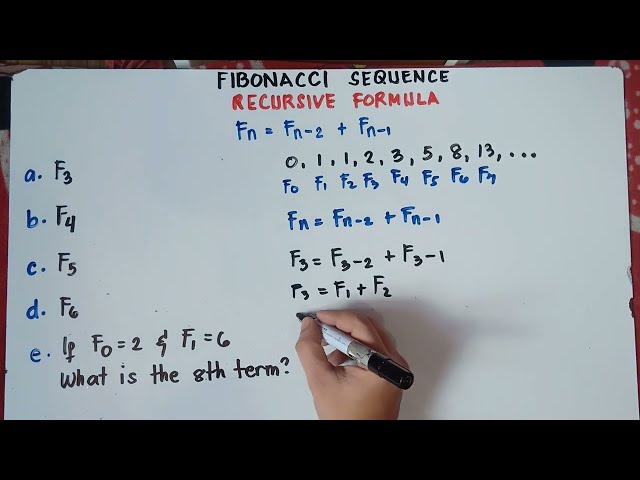 FIBONACCI SEQUENCE
RECURSIVE FORMULA
Fn = Fn-2 + Fn-1
a. F3
b. F4
c. F5
d. F6
e. If F0 = 2 & F1 = 6
What is the 8th term?
0, 1, 1, 2, 3, 5, 8, 13, ...
F0 F1 F2 F3 F4 F5 F6 F7
Fn = Fn-2 + Fn-1
F3 = F3-2 + F3-1
F3 = F1 + F2